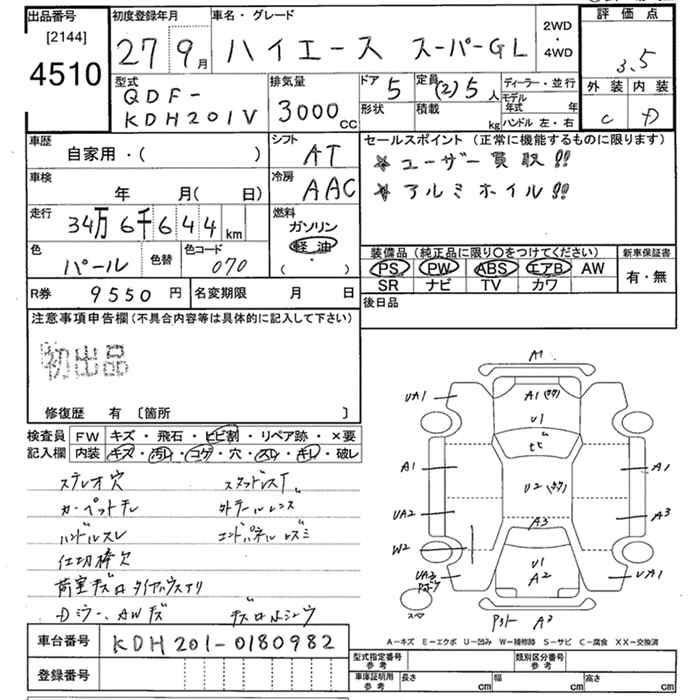 出品番号
[2144]
4510
初度登録年月
27 9月
車名・グレード
ハイエース スーパーGL
2WD
・
4WD
評価点
3.5
外装 内装
C D
型式
QDF-
KDH201V
排気量
3000cc
ドア 5
形状
定員 (2)5人
積載 kg
ディーラー・並行
モデル年式 年
ハンドル 左・右
車歴
自家用・( )
シフト
AT
セールスポイント (正常に機能するものに限ります)
★ユーザー買取!!
★アルミホイル!!
車検
年 月( 日)
冷房
AAC
走行
34万6千644km
燃料
ガソリン
軽油
( ・ )
色
パール
色替
色コード
070
装備品 (純正品に限り○をつけてください)
PS PW ABS エアB AW
SR ナビ TV カワ
新車保証書
有・無
R券 9550円
名変期限 月 日
後日品
注意事項申告欄(不具合内容等は具体的に記入して下さい)
初出品
修復歴 有 〔箇所 〕
検査員
記入欄
FW キズ・飛石・ヒビ割・リペア跡・×要
内装 キズ・汚レ・コゲ・穴・スレ・キレ・破レ
ステレオ穴 スタッドレスT
カーペットキレ 外テールレンズ
ハンドルスレ エンドパネルユガミ
仕切棒欠
荷室キズ
Dミラー、AWキズ
A1
UA1
A1(カケ)
U1
ヒビ
A1
A1
U2(カケ)
UA2
A3
A3
W2
U1
A2
UA2
UA1
A2
車台番号 KDH201-0180982
登録番号
A-キズ E-エクボ U-凹み W-補修跡 S-サビ C-腐食 XX-交換済
型式指定番号
参考
類別区分番号
参考
車庫証明用
参考
長さ cm
幅 cm
高さ cm